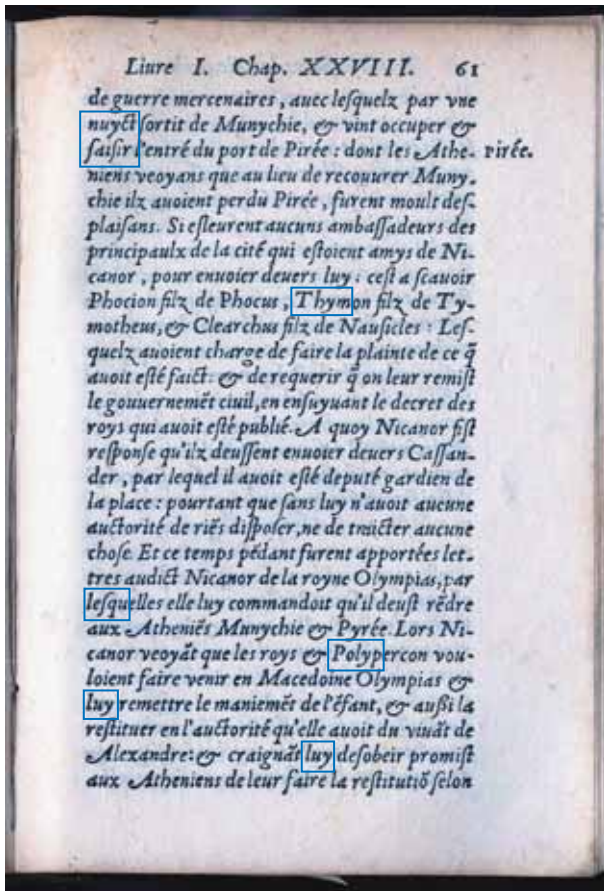 Liure I. Chap. XXVIII. 61
de guerre mercenaires, auec leſquelz par vne
nuyct ſortit de Munychie, & vint occuper &
ſaiſir l'entré du port de Pirée : dont les Athe- Pirée.
niens veoyans que au lieu de recouurer Muny-
chie ilz auoient perdu Pirée, furent moult deſ-
plaiſans. Si eſleurent aucuns ambaſſadeurs des
principaulx de la cité qui eſtoient amys de Ni-
canor, pour enuoier deuers luy : ceſt a ſcauoir
Phocion filz de Phocus, Thymon filz de Ty-
motheus, & Clearchus filz de Nauſicles : Leſ-
quelz auoient charge de faire la plainte de ce q̃
auoit eſté faict: & de requerir q̃ on leur remiſt
le gouuernemēt ciuil, en enſuyuant le decret des
roys qui auoit eſté publié. A quoy Nicanor fiſt
reſponſe qu'ilz deuſſent enuoier deuers Caſſan-
der, par lequel il auoit eſté deputé gardien de
la place : pourtant que ſans luy n'auoit aucune
auctorité de riēs diſpoſer, ne de traicter aucune
choſe. Et ce temps pēdant furent apportées let-
tres audict Nicanor de la royne Olympias, par
leſquelles elle luy commandoit qu'il deuſt rēdre
aux Atheniēs Munychie & Pyrée. Lors Ni-
canor veoyāt que les roys & Polypercon vou-
loient faire venir en Macedoine Olympias &
luy remettre le maniemēt de l'ēfant, & auſsi la
reſtituer en l'auctorité qu'elle auoit du viuāt de
Alexandre: & craignāt luy deſobeir promiſt
aux Atheniens de leur faire la reſtitutiō ſelon